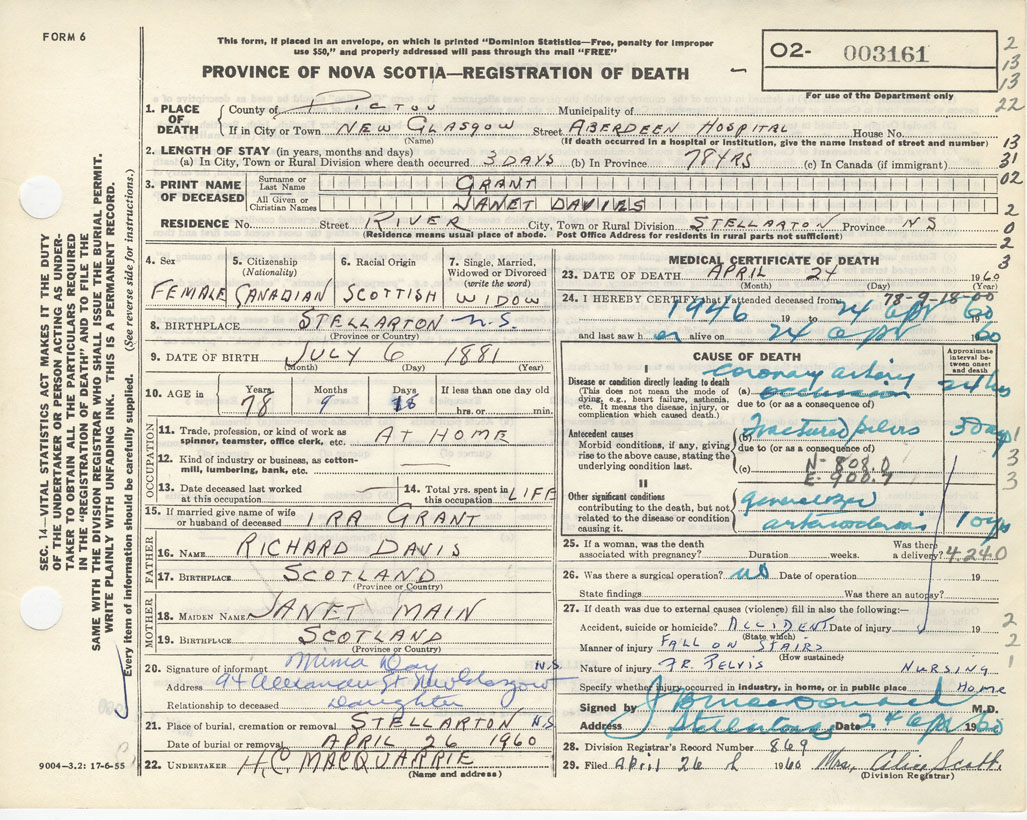 FORM 6
This form, if placed in an envelope, on which is printed "Dominion Statistics—Free, penalty for improper
use $50," and properly addressed will pass through the mail "FREE"
O2- 003161
For use of the Department only
PROVINCE OF NOVA SCOTIA—REGISTRATION OF DEATH
2
13
13
22
13
31
02
2
0
2
3
SEC. 14—VITAL STATISTICS ACT MAKES IT THE DUTY
OF THE UNDERTAKER OR PERSON ACTING AS UNDER-
TAKER TO OBTAIN ALL THE PARTICULARS REQUIRED
IN THE "REGISTRATION OF DEATH" AND TO FILE THE
SAME WITH THE DIVISION REGISTRAR WHO SHALL ISSUE THE BURIAL PERMIT.
WRITE PLAINLY WITH UNFADING INK. THIS IS A PERMANENT RECORD.
Every item of information should be carefully supplied. (See reverse side for instructions.)
1. PLACE OF DEATH
County of PICTOU Municipality of
If in City or Town NEW GLASGOW Street ABERDEEN HOSPITAL House No.
(Name) (If death occurred in a hospital or institution, give the name instead of street and number)
2. LENGTH OF STAY (in years, months and days)
(a) In City, Town or Rural Division where death occurred 3 DAYS (b) In Province 78 YRS (c) In Canada (if immigrant)
3. PRINT NAME OF DECEASED
Surname or Last Name GRANT
All Given or Christian Names JANET DAVIES
RESIDENCE No. Street RIVER City, Town or Rural Division STELLARTON Province NS
(Residence means usual place of abode. Post Office Address for residents in rural parts not sufficient)
4. Sex FEMALE
5. Citizenship (Nationality) CANADIAN
6. Racial Origin SCOTTISH
7. Single, Married, Widowed or Divorced (write the word) WIDOW
8. BIRTHPLACE STELLARTON N.S.
(Province or Country)
9. DATE OF BIRTH JULY 6 1881
(Month) (Day) (Year)
10. AGE in Years 78 Months 9 Days 18 If less than one day old hrs. or min.
OCCUPATION
11. Trade, profession, or kind of work as spinner, teamster, office clerk, etc. AT HOME
12. Kind of industry or business, as cotton-mill, lumbering, bank, etc.
13. Date deceased last worked at this occupation
14. Total yrs. spent in this occupation LIFE
15. If married give name of wife or husband of deceased IRA GRANT
FATHER
16. NAME RICHARD DAVIS
17. BIRTHPLACE SCOTLAND
(Province or Country)
MOTHER
18. MAIDEN NAME JANET MAIN
19. BIRTHPLACE SCOTLAND
(Province or Country)
20. Signature of informant Mima Day N.S.
Address 94 Alexander St New Glasgow
Relationship to deceased Daughter
21. Place of burial, cremation or removal STELLARTON N.S.
Date of burial or removal APRIL 26 1960
22. UNDERTAKER H.C. MACQUARRIE
(Name and address)
9004—3.2: 17-6-55
MEDICAL CERTIFICATE OF DEATH
23. DATE OF DEATH APRIL 24 1960
(Month) (Day)
78-9-18-00
24. I HEREBY CERTIFY that I attended deceased from
1946 19 to 24 Apr 1960
and last saw h er alive on 24 Apr 1960
CAUSE OF DEATH
Approximate interval between onset and death
I
Disease or condition directly leading to death
(This does not mean the mode of dying, e.g., heart failure, asthenia, etc. It means the disease, injury, or complication which caused death.)
coronary artery
(a) occlusion 24 hrs
due to (or as a consequence of)
Antecedent causes
Morbid conditions, if any, giving rise to the above cause, stating the underlying condition last.
(b) Fractured pelvis 3 Days
due to (or as a consequence of)
(c) N-808.0
E-900.7
1
3
3
II
Other significant conditions
contributing to the death, but not related to the disease or condition causing it.
generalized
arteriosclerosis 10 yrs
25. If a woman, was the death associated with pregnancy? Duration weeks. Was there a delivery? 4.24.0
26. Was there a surgical operation? no Date of operation 19
State findings Was there an autopsy?
27. If death was due to external causes (violence) fill in also the following:—
Accident, suicide or homicide? ACCIDENT Date of injury 19
(State which)
Manner of injury FALL ON STAIRS
(How sustained)
Nature of injury FR. PELVIS NURSING
Specify whether injury occurred in industry, in home, or in public place HOME
2
2
1
Signed by J B MacDonald M.D.
Address Stellarton Date 24 Apr 1960
28. Division Registrar's Record Number 869
29. Filed April 26 1960 Mrs. Alice Scott
(Division Registrar)